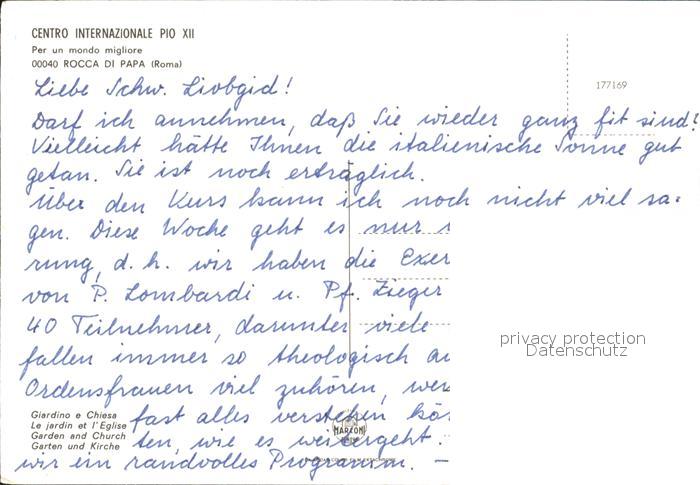 CENTRO INTERNAZIONALE PIO XII
Per un mondo migliore
00040 ROCCA DI PAPA (Roma)
177169
Liebe Schw. Liobgid!
Darf ich annehmen, daß Sie wieder ganz fit sind?
Vielleicht hätte Ihnen die italienische Sonne gut
getan. Sie ist noch erträglich.
Über den Kurs kann ich noch nicht viel sa-
gen. Diese Woche geht es nur
rung, d. h. wir haben die Exer
von P. Lombardi u. Pf. Zieger
40 Teilnehmer, darunter viele
fallen immer so theologisch au
Ordensfrauen viel zuhören, wer
fast alles verstehen kö
ten, wie es weitergeht.
wir ein randvolles Programm. –
privacy protection
Datenschutz
Giardino e Chiesa
Le jardin et l'Eglise
Garden and Church
Garten und Kirche
MARZONI